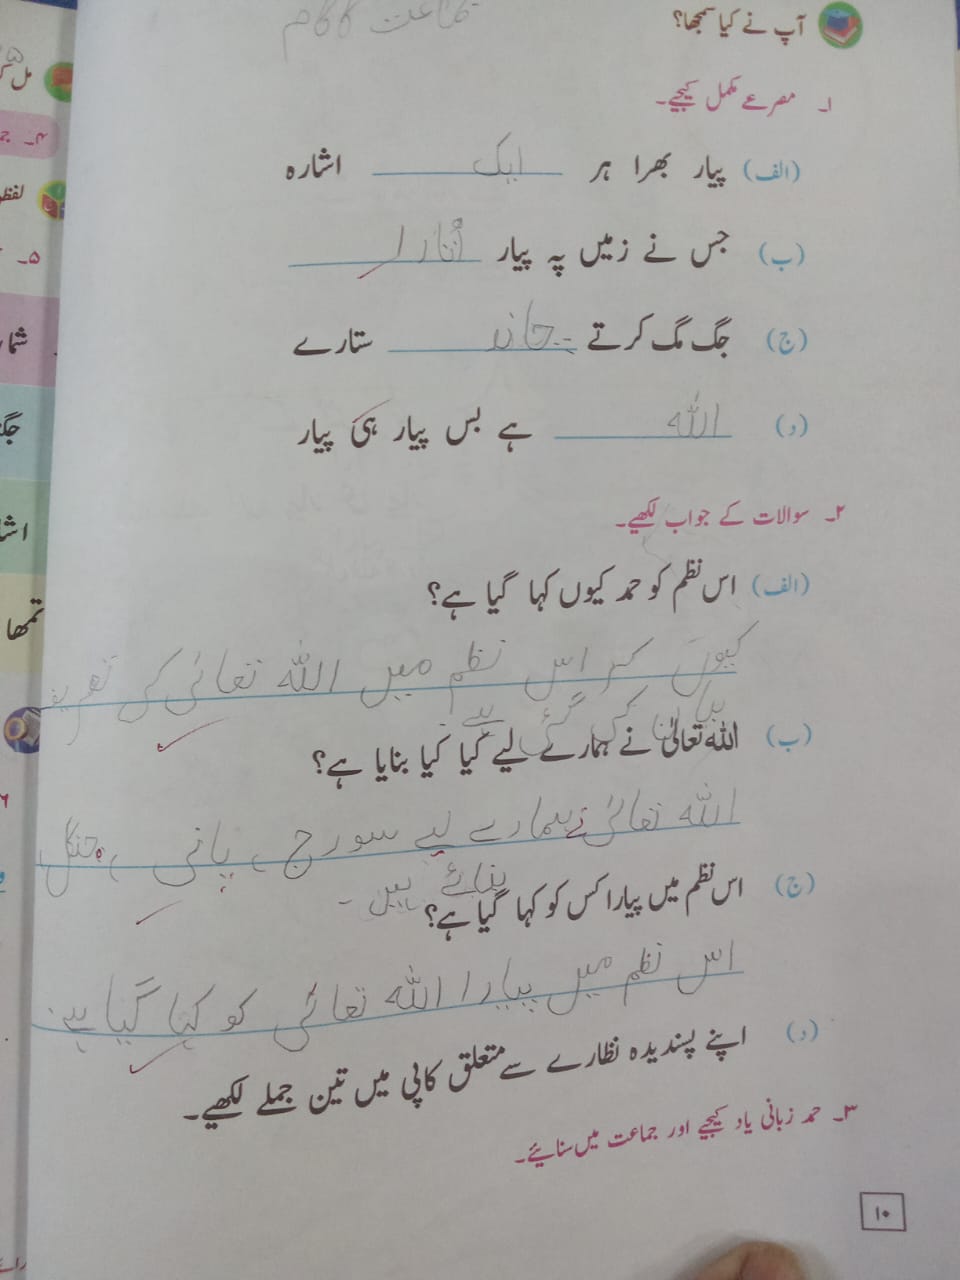 جماعت کا کام
آپ نے کیا سمجھا؟
۱۔ مصرعے مکمل کیجیے۔
(الف) پیار بھرا ہر ایک اشارہ
(ب) جس نے زمیں پہ پیار اُتارا
(ج) جگ مگ کرتے چاند ستارے
(د) اللہ ہے بس پیار ہی پیار
۲۔ سوالات کے جواب لکھیے۔
(الف) اس نظم کو حمد کیوں کہا گیا ہے؟
کیوں کہ اس نظم میں اللہ تعالیٰ کی تعریف
بیان کی گئی ہے
(ب) اللہ تعالیٰ نے ہمارے لیے کیا کیا بنایا ہے؟
اللہ تعالیٰ نے ہمارے لیے سورج، پانی، جنگل
بنائے ہیں۔
(ج) اس نظم میں پیارا کس کو کہا گیا ہے؟
اس نظم میں پیارا اللہ تعالیٰ کو کہا گیا ہے۔
(د) اپنے پسندیدہ نظارے سے متعلق کاپی میں تین جملے لکھیے۔
۳۔ حمد زبانی یاد کیجیے اور جماعت میں سنائیے۔
۱۰
مل
۴۔
۵۔
اشا
تمھا
۶